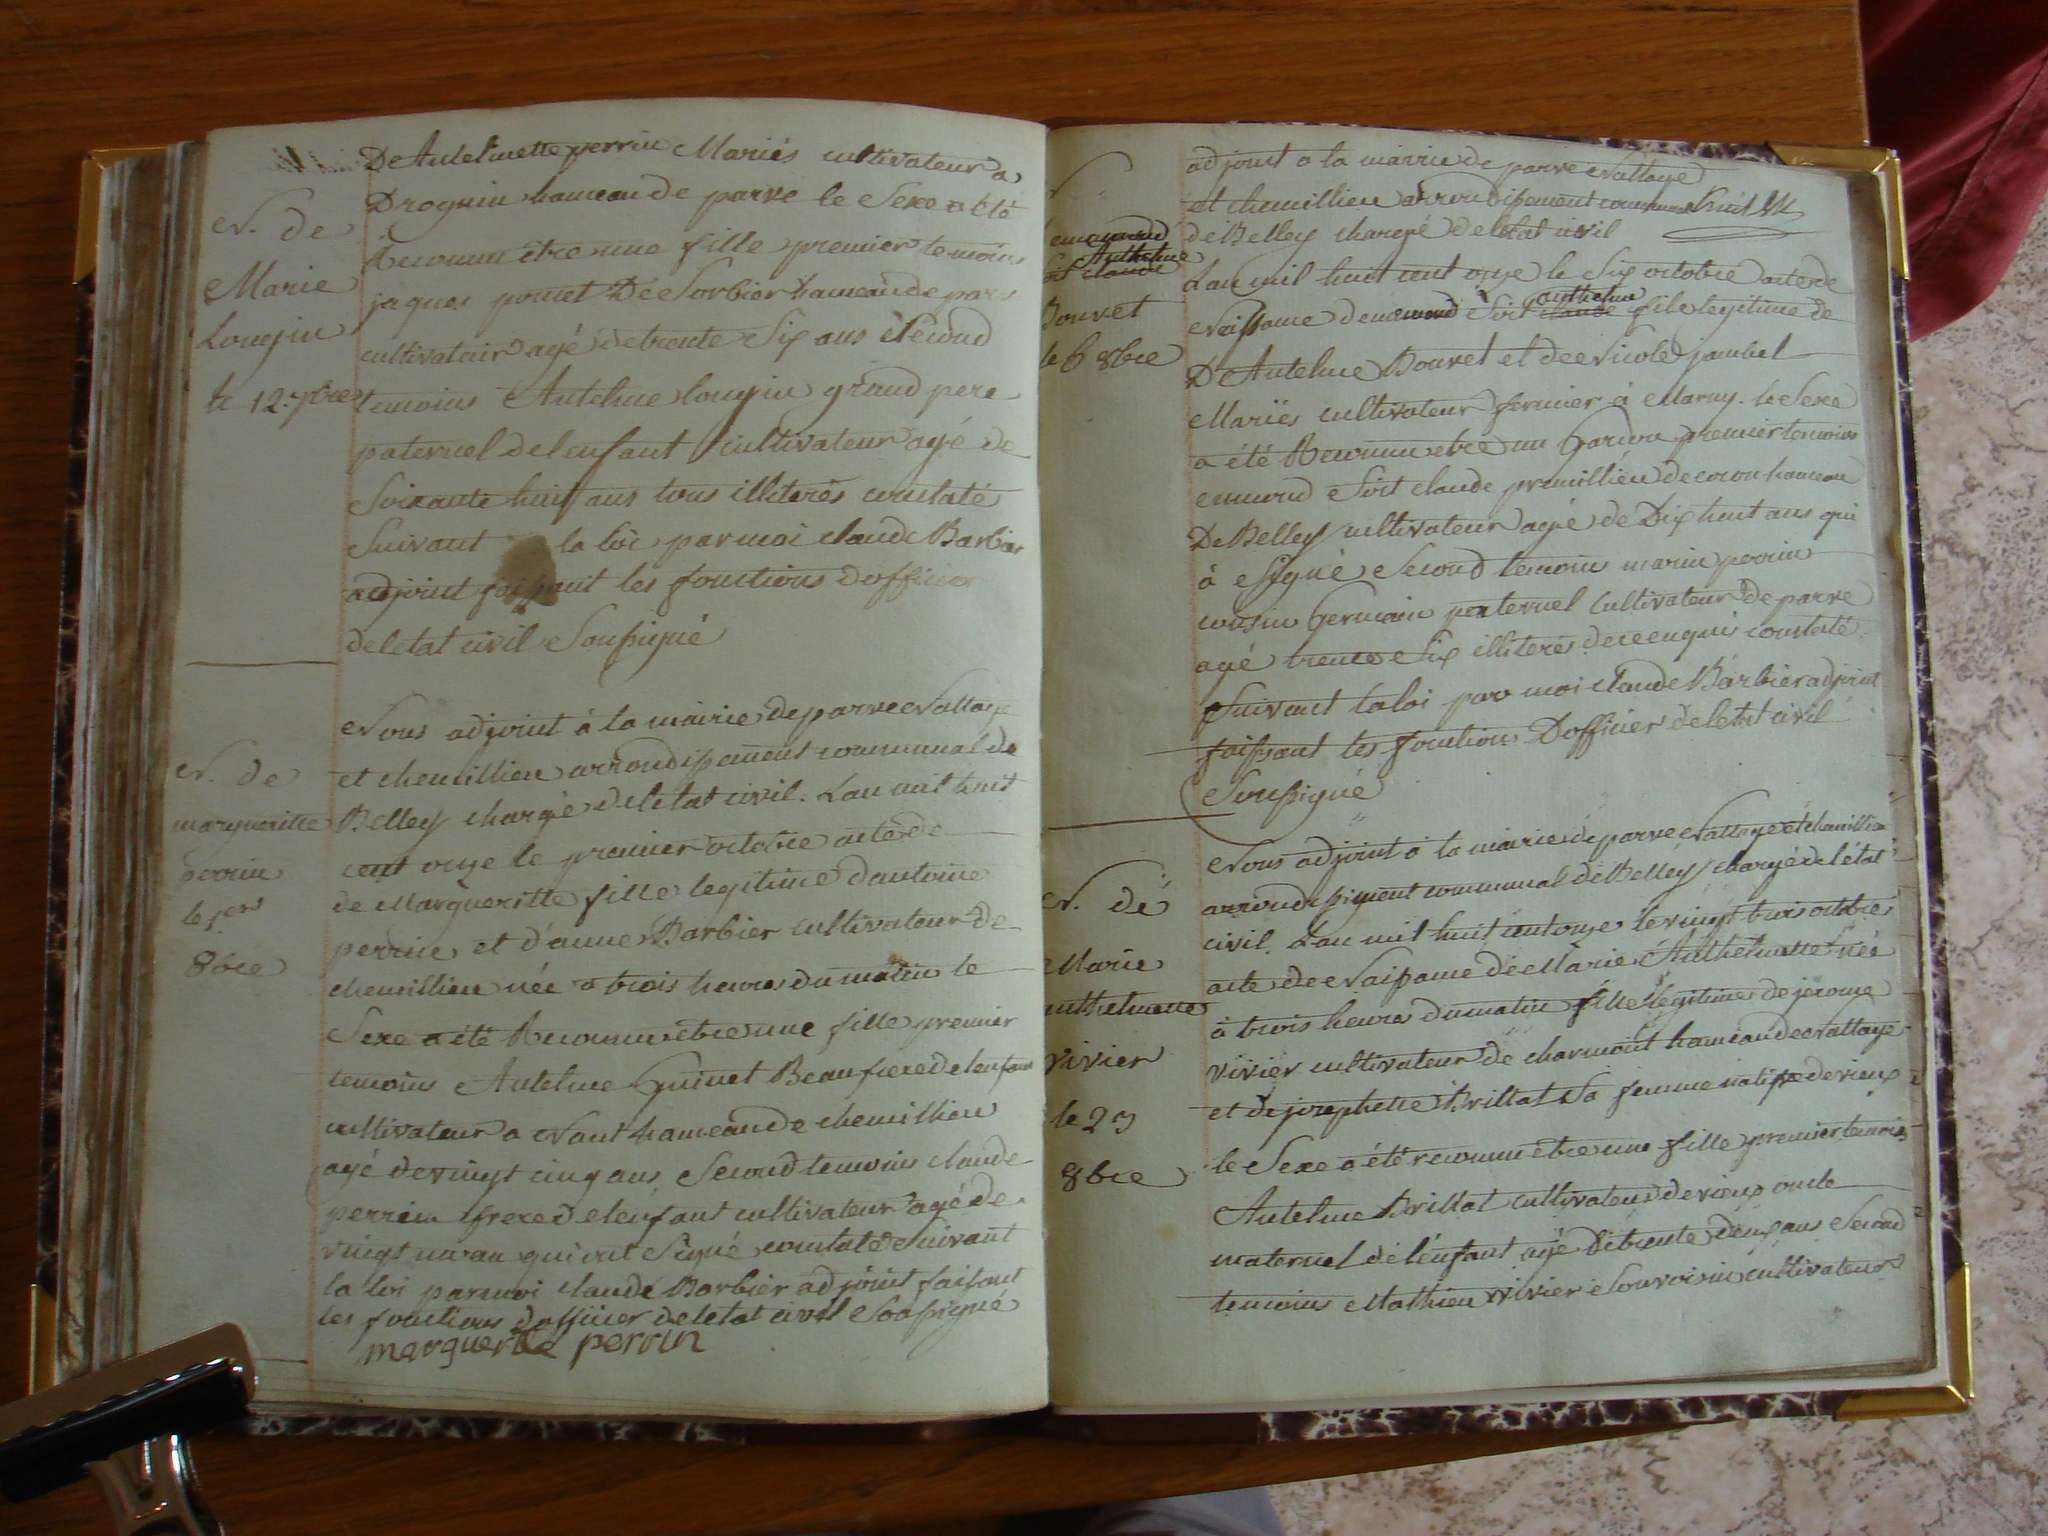 De Antelmette perrin Mariés cultivateur a
Droguin hameau de parve le Sexe a été
Reconnu être une fille premier temoins
jaques pomet De Sorbier hameau de parv
cultivateur agé de trente Six ans Second
temoins Antelme longin grand pere
paternel de lenfant cultivateur agé de
Soixante huit ans tous illiterés constaté
Suivant la loi par moi claude Barbier
adjoint faisant les fonctions Dofficier
de letat civil Soussigné
N. de
Marie
Longin
le 12 7bre
Nous adjoint à la mairie de parve Nattage
et chemillieu arrondissement communal de
Belley chargé de letat civil. Lan mil huit
cent onze le premier octobre acte de
de Margueritte fille legitime dantoine
perrin et d'anne Barbier cultivateur de
chemillieu née a trois heures du matin le
Sexe a été Reconnu être une fille premier
temoins Antelme Guinet Beaufrere de lenfant
cultivateur a Nant hameau de chemillieu
agé de vingt cinq ans Second temoins claude
perrin frere de lenfant cultivateur agé de
vingt un an qui ont Signé constaté Suivant
la loi par moi claude Barbier adjoint faisant
les fonctions dofficier de letat civil Soussigné
marguerite perrin
N. de
margueritte
perrin
le 1er
8bre
adjoint a la mairie de parve Nattage
et chemillieu arrondissement communal
de Belley chargé de létat civil
Lan mil huit cent onze le Six octobre acte de
Naissance denemond Soit claude anthelme fils legitime de
D'Antelme Bouvet et de Nicole jambet
Mariés cultivateur fermier à Marny. le Sexe
a été Reconnu etre un Garcon premier temoins
ennemond Soit claude premillieu de coron hameau
De Belley cultivateur agé de Dix huit ans qui
à Signé Second temoins marin perrin
cousin Germain paternel cultivateur de parve
agé trente Six illiterés de ce enquis constaté
Suivant la loi par moi claude Barbier adjoint
faissant les fonctions Dofficier de letat civil
Soussigné
N.
enemond
Anthelme
et claude
Bouvet
le 6 8bre
Nous adjoint a la mairie de parve Nattage et chemillieu
arrondissement communal de Belley chargé de l'état
civil. Lan mil huit cent onze le vingt trois octobre
acte de Naissance de Marie Anthelmette née
à trois heures du matin fille legitime de jerome
vivier cultivateur de charmont hameau de Nattage
et de josephette Brillat Sa femme native de vieux
le Sexe a été reconnu etre une fille premier temoins
Antelme Brillat cultivateur de vieux oncle
maternel de lenfant agé de trente deux ans Second
temoins Mathieu vivier Son voisin cultivateur
N. de
Marie
anthelmette
vivier
le 23
8bre